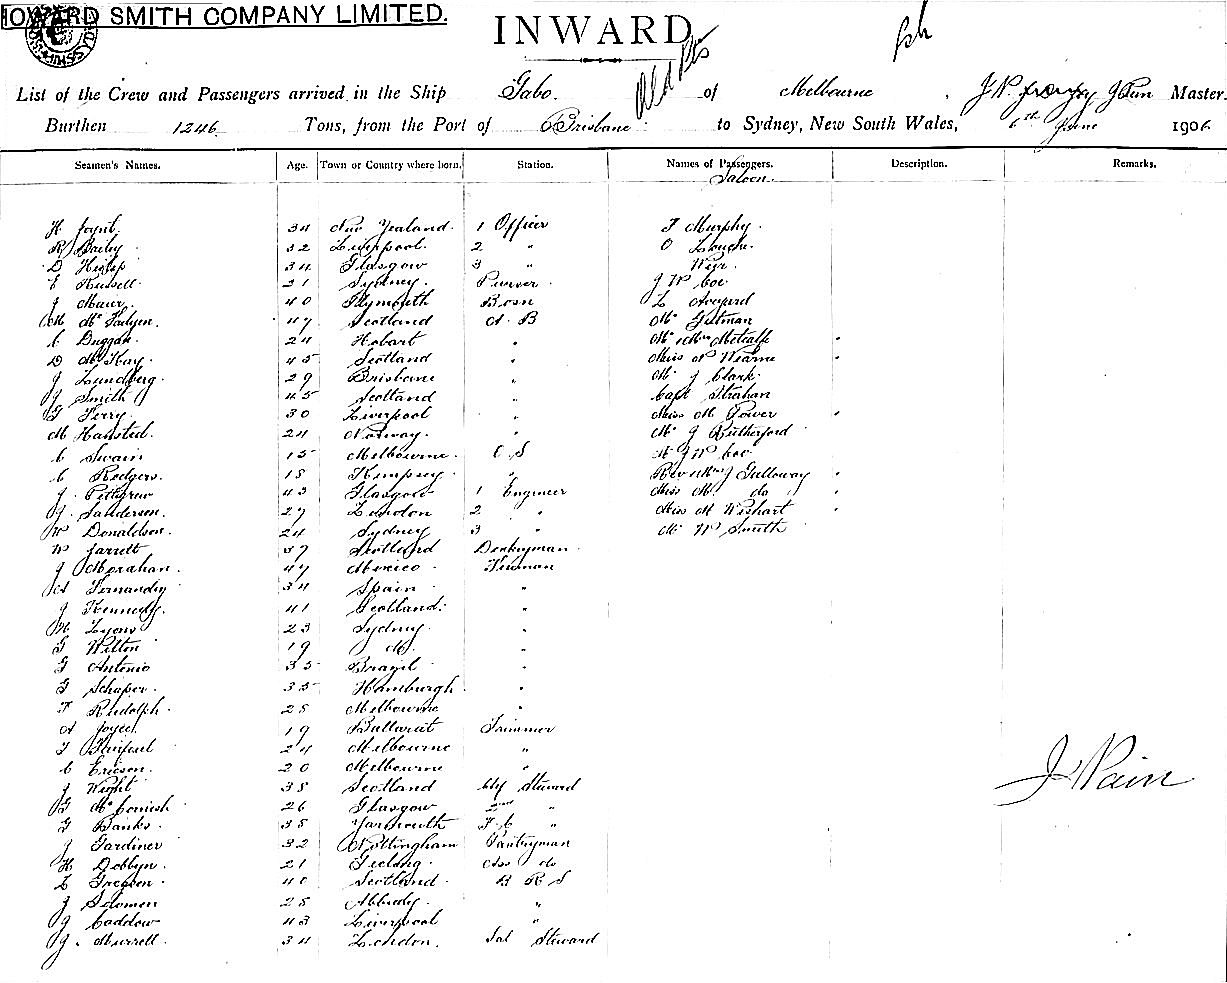 HOWARD SMITH COMPANY LIMITED.
INWARD
List of the Crew and Passengers arrived in the Ship Gabo. of Melbourne, J Pain Master.
Burthen 1246 Tons, from the Port of Brisbane to Sydney, New South Wales, 6th June 1906
Seamen's Names. Age. Town or Country where born. Station. Names of Passengers. Description. Remarks.
Saloon.
H 34 New Zealand. 1 Officer T Murphy
R Bailey 32 Liverpool. 2 " O
D Hislop 34 Glasgow 3 " Weir.
E Russell 21 Sydney. Purser J W Coe
J Mauer 40 Plymouth Bosn L
M 47 Scotland A. B Mr Gutman
C Duggan 24 Hobart " Mr & Mrs Metcalfe
D McKay. 45 Scotland " Miss N Wearne
J Lundberg. 29 Brisbane " Mr J Clark.
J Smith 45 Scotland " Capt Strahan
G Terry. 30 Liverpool " Miss M Power
M Hansted. 24 Norway. " Mr J Rutherford
C Swain 15 Melbourne. O. S J W Coe
C Rodgers. 18 Kempsey. " Rev & Mrs J Galloway
J. Pettigrew 43 Glasgow 1 Engineer Miss M. do
J. Sanderson. 27 London 2 " Miss M Wishart
W Donaldson. 24 Sydney 3 " Mr W Smith
W Jarrett 37 Scotland Donkeyman.
J Morahan. 47 Mexico Fireman
A Fernandez 34 Spain "
J Kennedy. 41 Scotland. "
H Lyons 23 Sydney. "
G Wilton 19 do. "
G Antonio 35 Brazil "
G Schaper. 35 Hamburgh. "
F Rudolph. 28 Melbourne
A Joyce. 19 Ballarat Trimmer
T 24 Melbourne "
C Ericson. 20 Melbourne "
J Wight 38 Scotland Chf Steward
G McCornish 26 Glasgow 2nd "
G Banks. 38 Yarmouth F. C "
J Gardiner 32 Nottingham Pantryman
H Doblyn. 21 Geelong. Ass do
L Gregson. 40 Scotland. B R S
J Solomon 28 "
J Caddow 43 Liverpool "
J. Murrell. 34 London. Sal Steward
J Pain